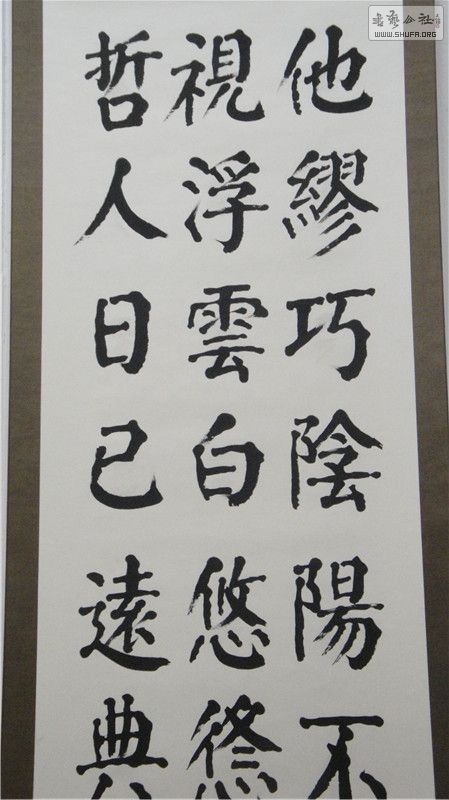 他繆巧陰陽不
視浮雲白悠悠
哲人日已遠典
書法公社
WWW.SHUFA.ORG